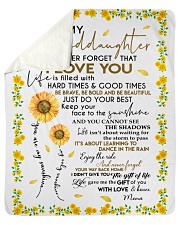 MY
ddaughter
ER FORGET THAT
I LOVE YOU
Life is filled with
HARD TIMES & GOOD TIMES
BE BRAVE, BE BOLD AND BE BEAUTIFUL
JUST DO YOUR BEST
Keep your
face to the sunshine
AND YOU CANNOT SEE
THE SHADOWS
Life isn't about waiting for
the storm to pass
IT'S ABOUT LEARNING TO
DANCE IN THE RAIN
Enjoy the ride
And never forget
YOUR WAY BACK HOME
I DIDN'T GIVE YOU The gift of life
Life gave me the GIFT OF YOU
WITH LOVE &
Mema
You are my sunshine